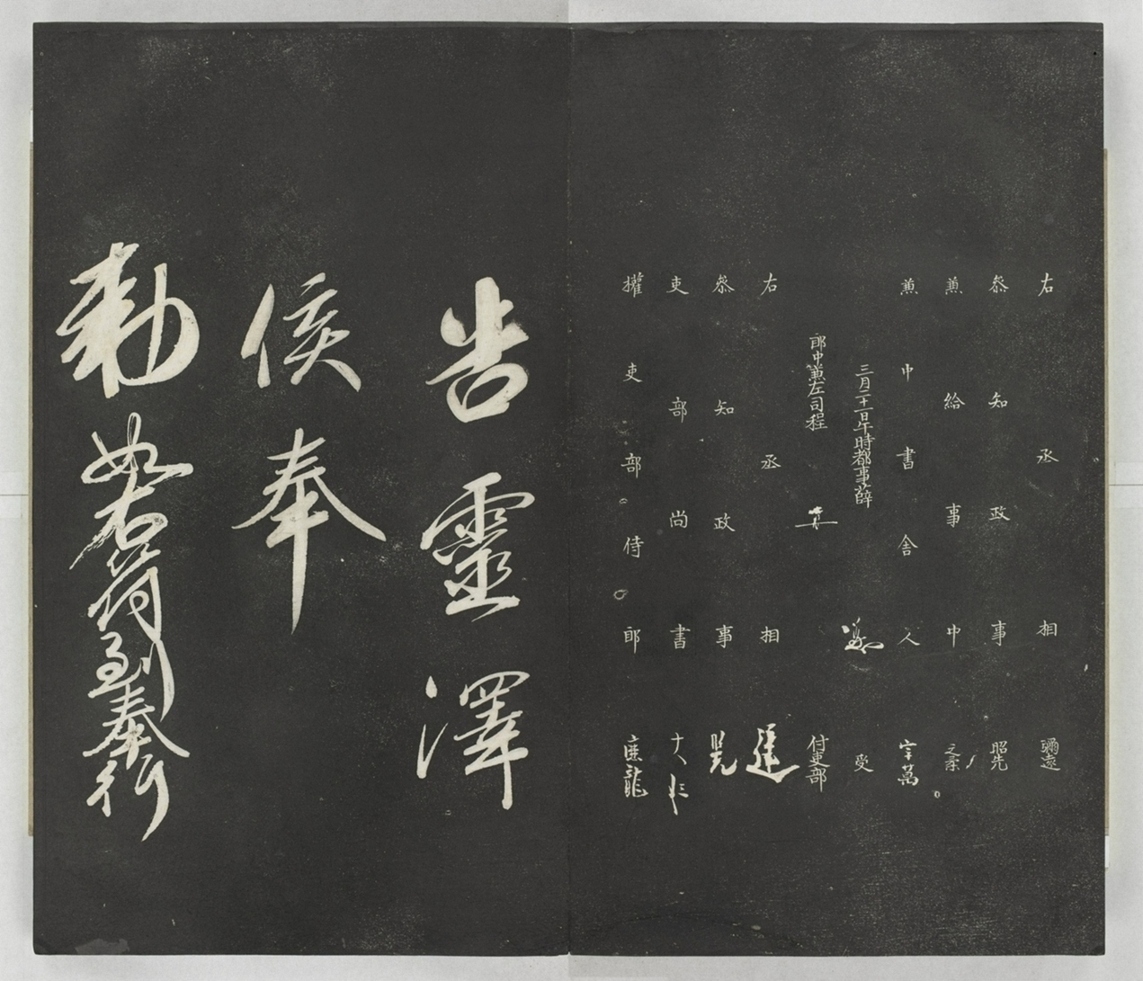 右丞相 彌遠
叅知政事 昭先
兼給事中 之
兼中書舍人 宇萬
三月二十一日午時都事薛 受
郎中兼左司程 付吏部
右丞相
叅知政事
吏部尚書
權吏部侍郎 龍
告靈澤
侯奉
勑如右符到奉行